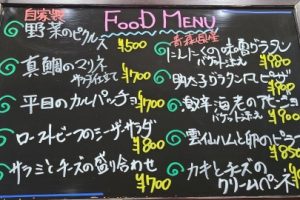 FOOD MENU
自家製
野菜のピクルス
¥500
真鯛のマリネ
サラダ仕立て
¥700
平目のカルパッチョ
¥700
ローストビーフのシーザーサラダ
¥800
サラミとチーズの盛り合わせ
¥700
青森県産
の味噌グラタン
バゲット添え
¥980
明太子グラタン
¥980
海老の
バゲット添え
¥900
雲仙ハムと卵の
¥850
カキとチーズの
クリームペンネ